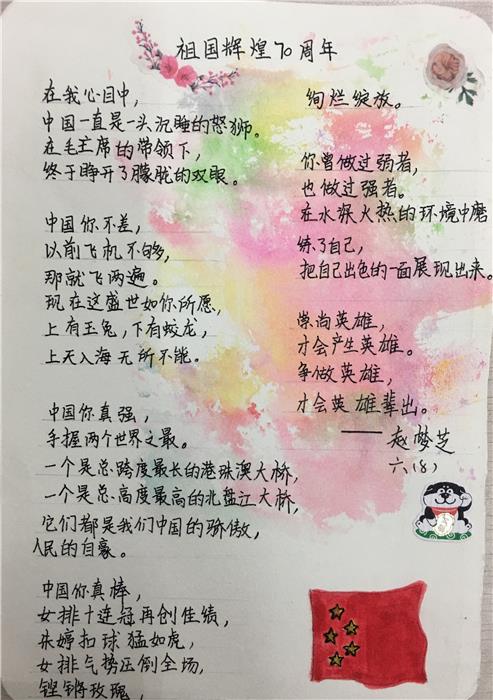 祖国辉煌70周年
在我心目中，
中国一直是一头沉睡的怒狮。
在毛主席的带领下，
终于睁开了朦胧的双眼。
中国你不差，
以前飞机不够，
那就飞两遍。
现在这盛世如你所愿，
上有玉兔，下有蛟龙，
上天入海无所不能。
中国你真强，
手握两个世界之最。
一个是总跨度最长的港珠澳大桥，
一个是总高度最高的北盘江大桥，
它们都是我们中国的骄傲，
人民的自豪。
中国你真棒，
女排十连冠再创佳绩，
朱婷扣球猛如虎，
女排气势压倒全场，
铿锵玫瑰，
绚烂绽放。
你曾做过弱者，
也做过强者。
在水深火热的环境中磨
练了自己，
把自己出色的一面展现出来。
崇尚英雄，
才会产生英雄。
争做英雄，
才会英雄辈出。
——赵梦芝
六（8）